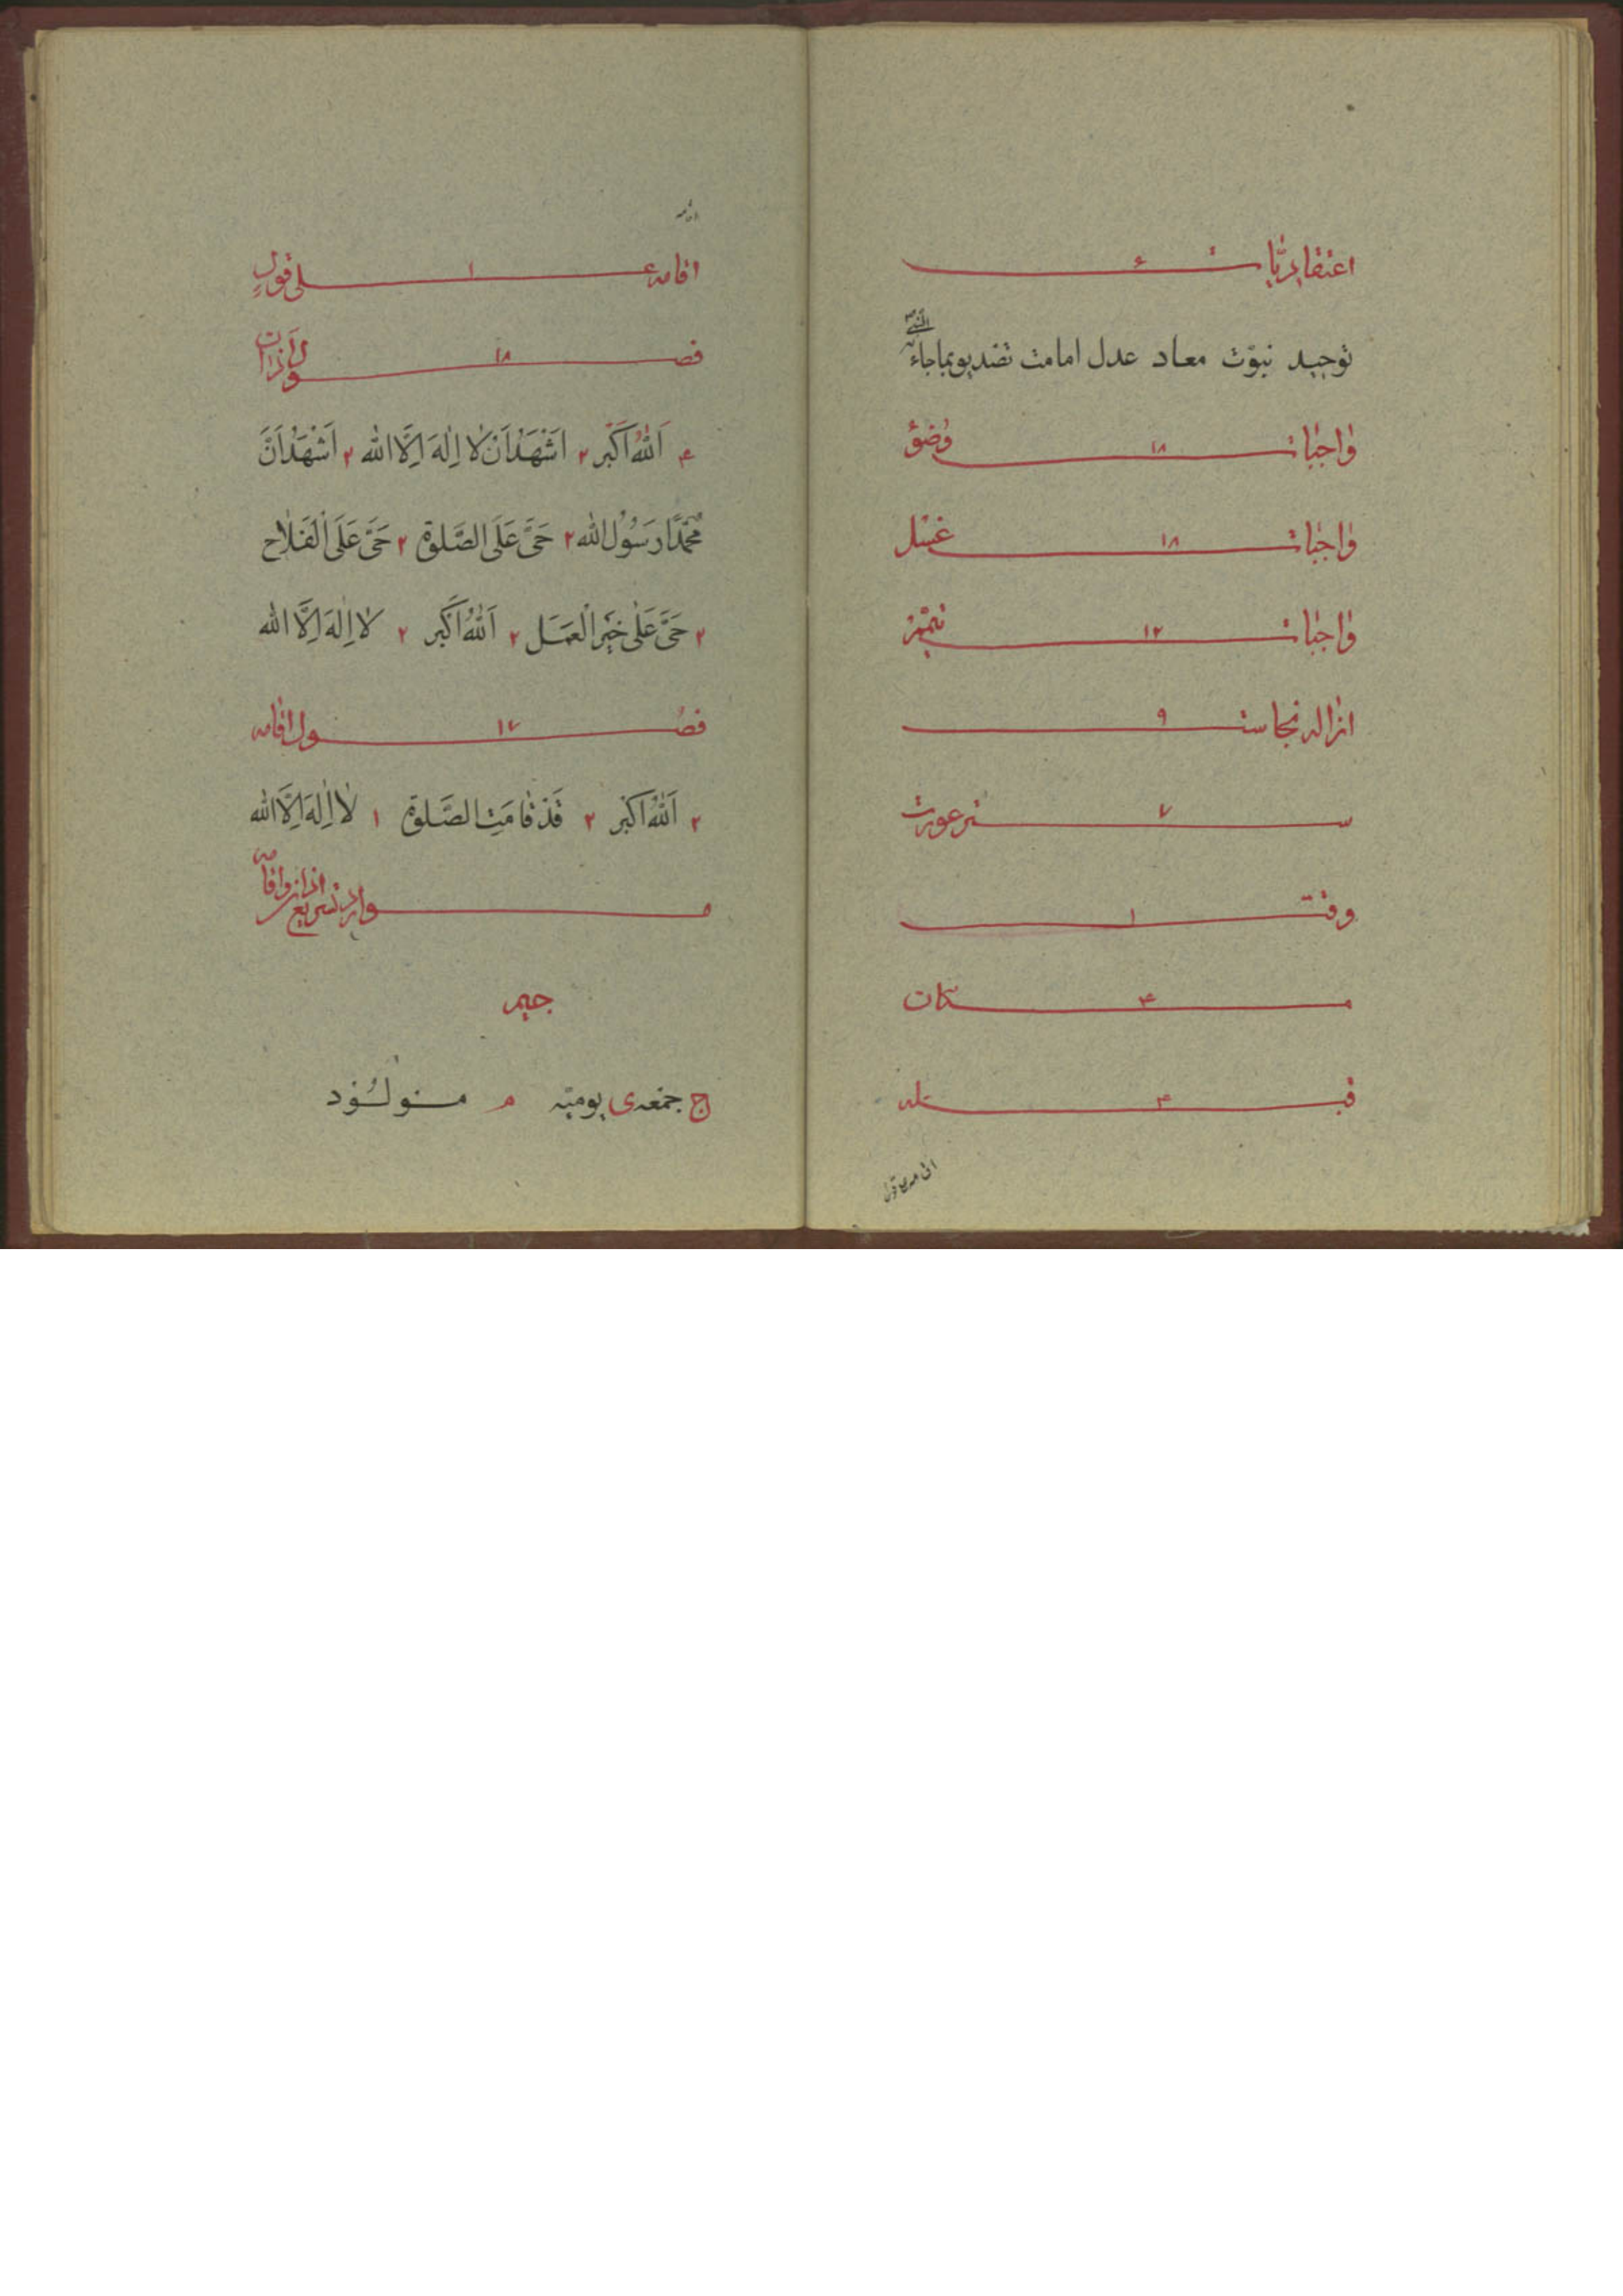 اعتقادیات ۶
توحید نبوّت معاد عدل امامت تصدیق بماجاء به النبی
واجبات ۱۸ وضوء
واجبات ۱۸ غسل
واجبات ۱۲ تیمّم
ازاله نجاست ۹
ستر عورت ۷
وقت ۱
مکان ۴
قبله ۳
اقامه علی قول
اقامه
اقامه علی ۱ قولٍ
فصول ۱۸ اذان
۴ اَللّٰهُ اَکْبَر ۲ اَشْهَدُ اَنْ لٰا اِلٰهَ اِلَّا اللّٰه ۲ اَشْهَدُ اَنَّ
مُحَمَّدًا رَسُوْلُ اللّٰه ۲ حَیَّ عَلَی الصَّلوة ۲ حَیَّ عَلَی الْفَلٰاح
۲ حَیَّ عَلٰی خَیْرِ الْعَمَل ۲ اَللّٰهُ اَکْبَر ۲ لٰا اِلٰهَ اِلَّا اللّٰه
فصول ۱۷ اقامه
۲ اَللّٰهُ اَکْبَر ۲ قَدْ قٰامَتِ الصَّلوة ۱ لٰا اِلٰهَ اِلَّا اللّٰه
موارد تشریع اذان و اقامه
جیم
ج جمعه ی یومیّه م مولود